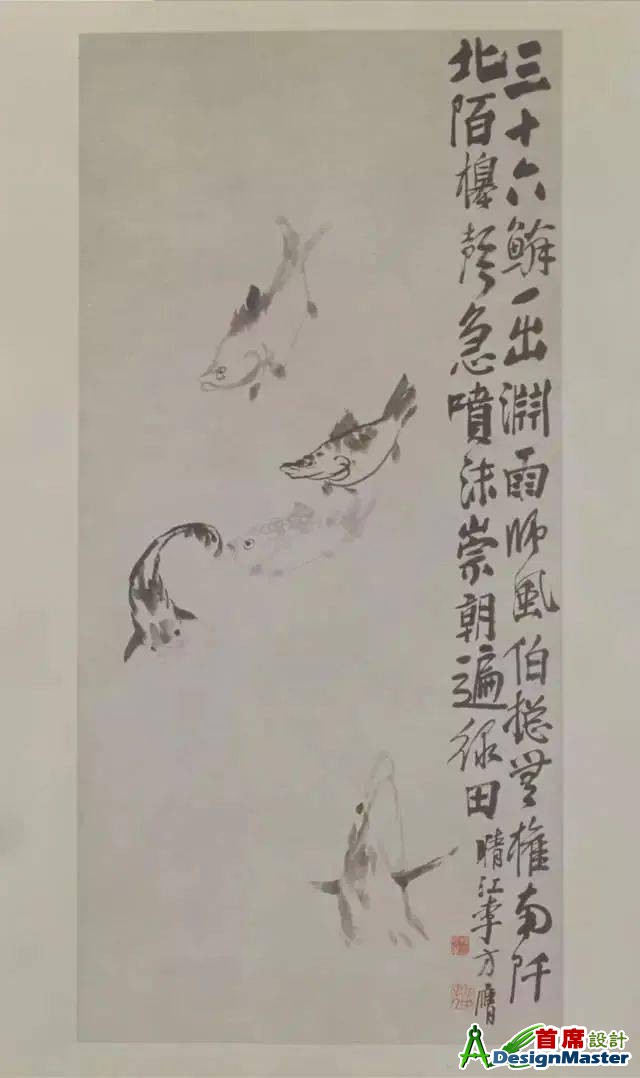 三十六鳞一出渊雨师風伯總無權南阡
北陌槔聲急噴沫崇朝遍綠田
晴江李方膺
首席設計
DesignMaster